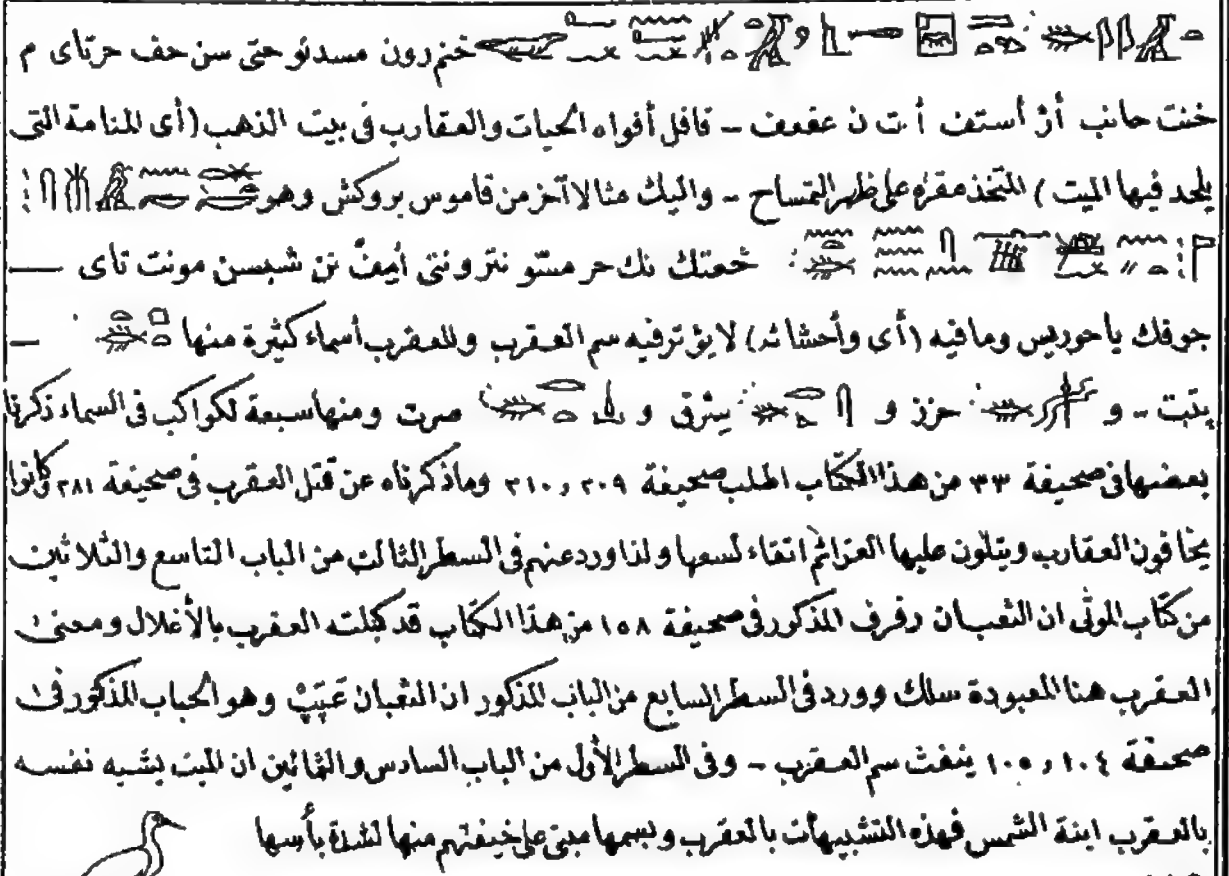 خنم رون مسدنو حتى سن حف حرتاى م
خنت حانب أر أستف أ.ت ن عقعف - قافل أفواه الحيات والعقارب فى بيت الذهب (أى المنامة التى
يلحد فيها الميت) المتخذ مقره على ظهر التمساح - واليك مثالا آخر من قاموس بروكش وهو
خعتك نك حر مستو نترو نتى أيمف نن شبسن مونت تاى —
جوفك ياحوريس ومافيه (أى وأحشائه) لايؤثر فيه سم العقرب وللعقرب أسماء كثيرة منها —
پتبت - و حزز و سرق و صرت ومنها سبعة لكواكب فى السماء ذكرنا
بعضها فى صحيفة ٣٣ من هذا الكتاب اطلب صحيفة ٢٠٩ و ٢١٠ وماذكرناه عن قتل العقرب فى صحيفة ٢٨١ وكانوا
يخافون العقارب ويتلون عليها العزائم اتقاء لسعها ولذا ورد عنهم فى السطر الثالث من الباب التاسع والثلاثين
من كتاب الموتى ان الثعبان رفرف المذكور فى صحيفة ١٥٨ من هذا الكتاب قد كبلته العقرب بالأغلال ومعنى
العقرب هنا المعبودة سلك وورد فى السطر السابع من الباب المذكور ان الثعبان عَپَپْ وهو الحباب المذكور فى
صحيفة ١٠٤ و ١٠٥ ينفث سم العقرب - وفى السطر الأول من الباب السادس والثمانين ان الميت يشبه نفسه
بالعقرب ابنة الشمس فهذه التشبيهات بالعقرب وبسمها مبنى على خيفتهم منها لشدة بأسها